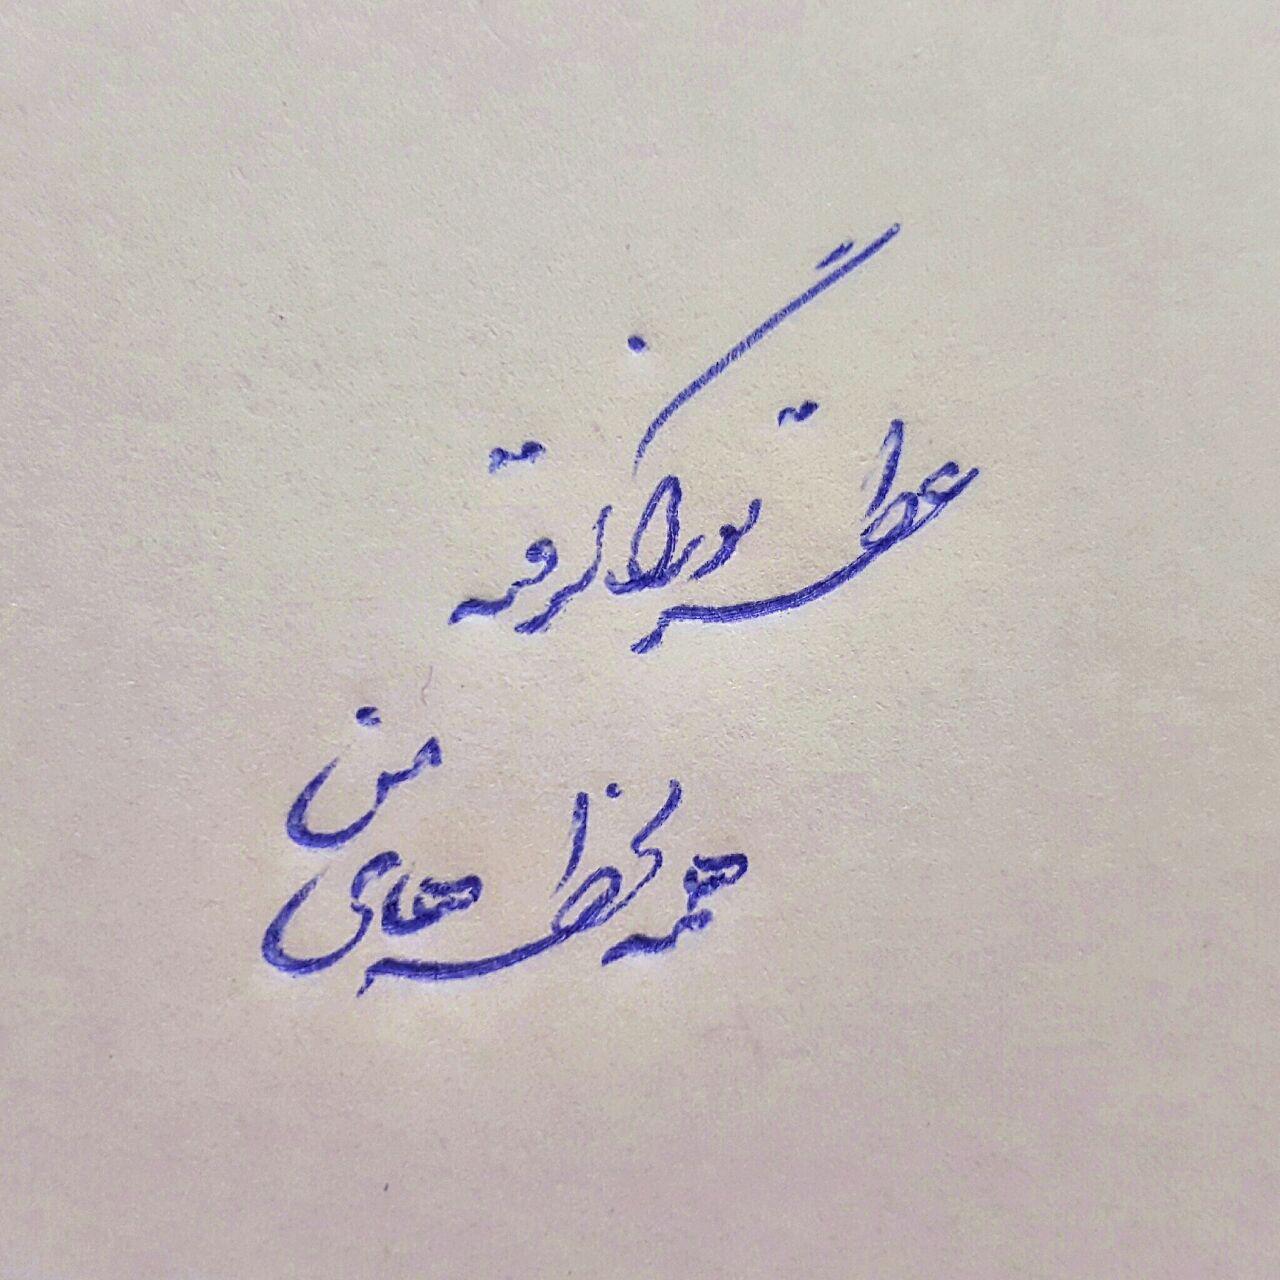 عطر تو را گرفته
همه لحظه های من